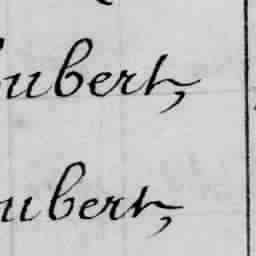 ubert,
ubert,